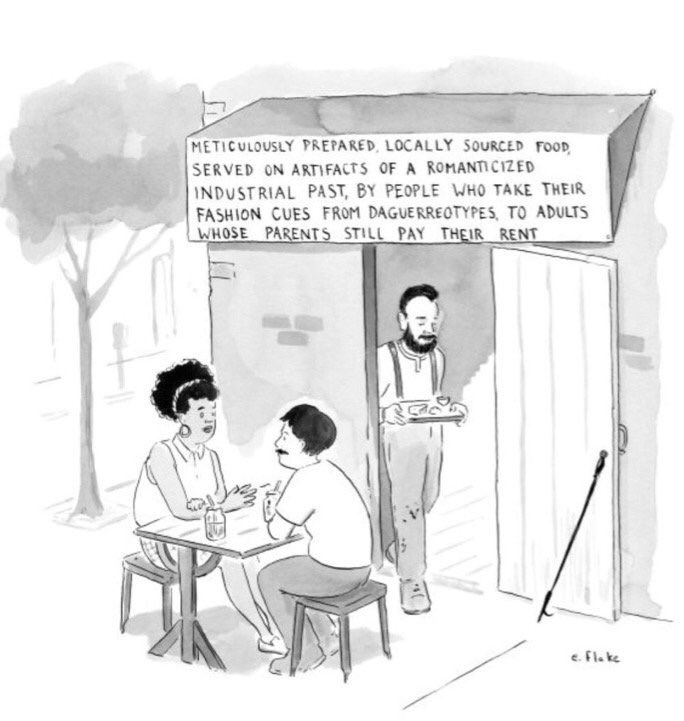 METICULOUSLY PREPARED, LOCALLY SOURCED FOOD,
SERVED ON ARTIFACTS OF A ROMANTICIZED
INDUSTRIAL PAST, BY PEOPLE WHO TAKE THEIR
FASHION CUES FROM DAGUERREOTYPES, TO ADULTS
WHOSE PARENTS STILL PAY THEIR RENT
e. flake